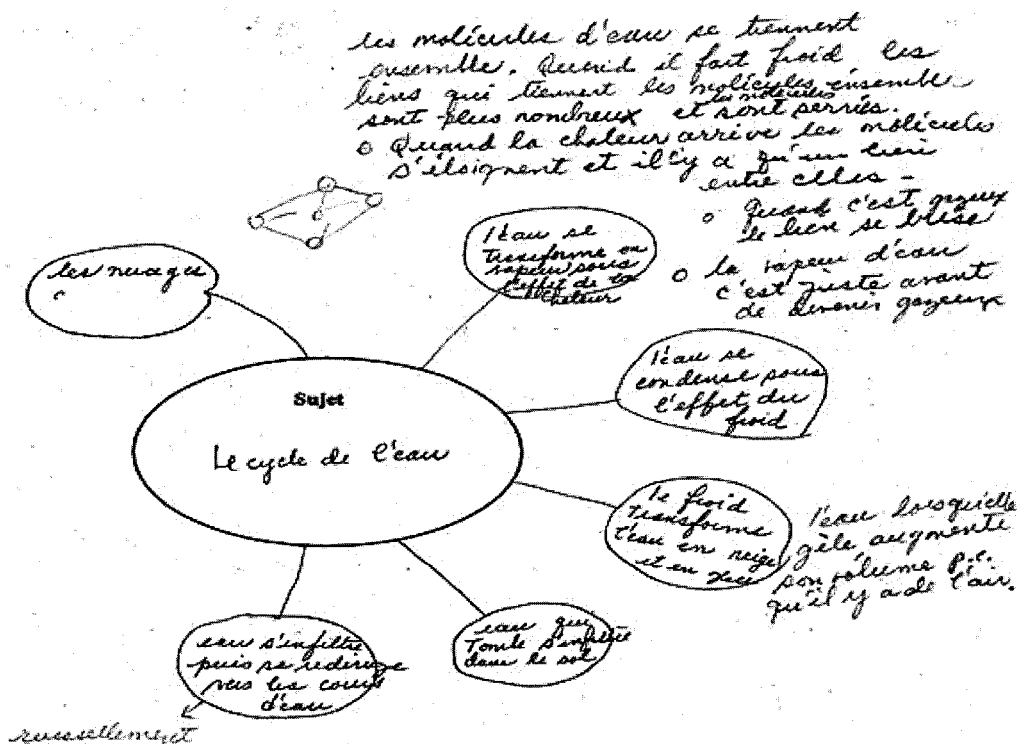 les molécules d'eau se tiennent
ensemble. Quand il fait froid les
liens qui tiennent les molécules ensemble
les molécules
sont plus nombreux et sont serrés.
o Quand la chaleur arrive les molécules
s'éloignent et il y a qu'un lien
entre elles -
o Quand c'est gazeux
le lien se brise
o la vapeur d'eau
c'est juste avant
de devenir gazeux
l'eau se
transforme en
vapeur sous
l'effet de la
chaleur
les nuages
l'eau se
condense sous
l'effet du
froid
Sujet
Le cycle de l'eau
le froid
transforme
l'eau en neige
et en
l'eau lorsqu'elle
gèle augmente
son volume p.c.
qu'il y a de l'air.
eau qui
tombe s'infiltre
dans le sol
eau s'infiltre
puis se redirige
vers les cours
d'eau
ruissellement